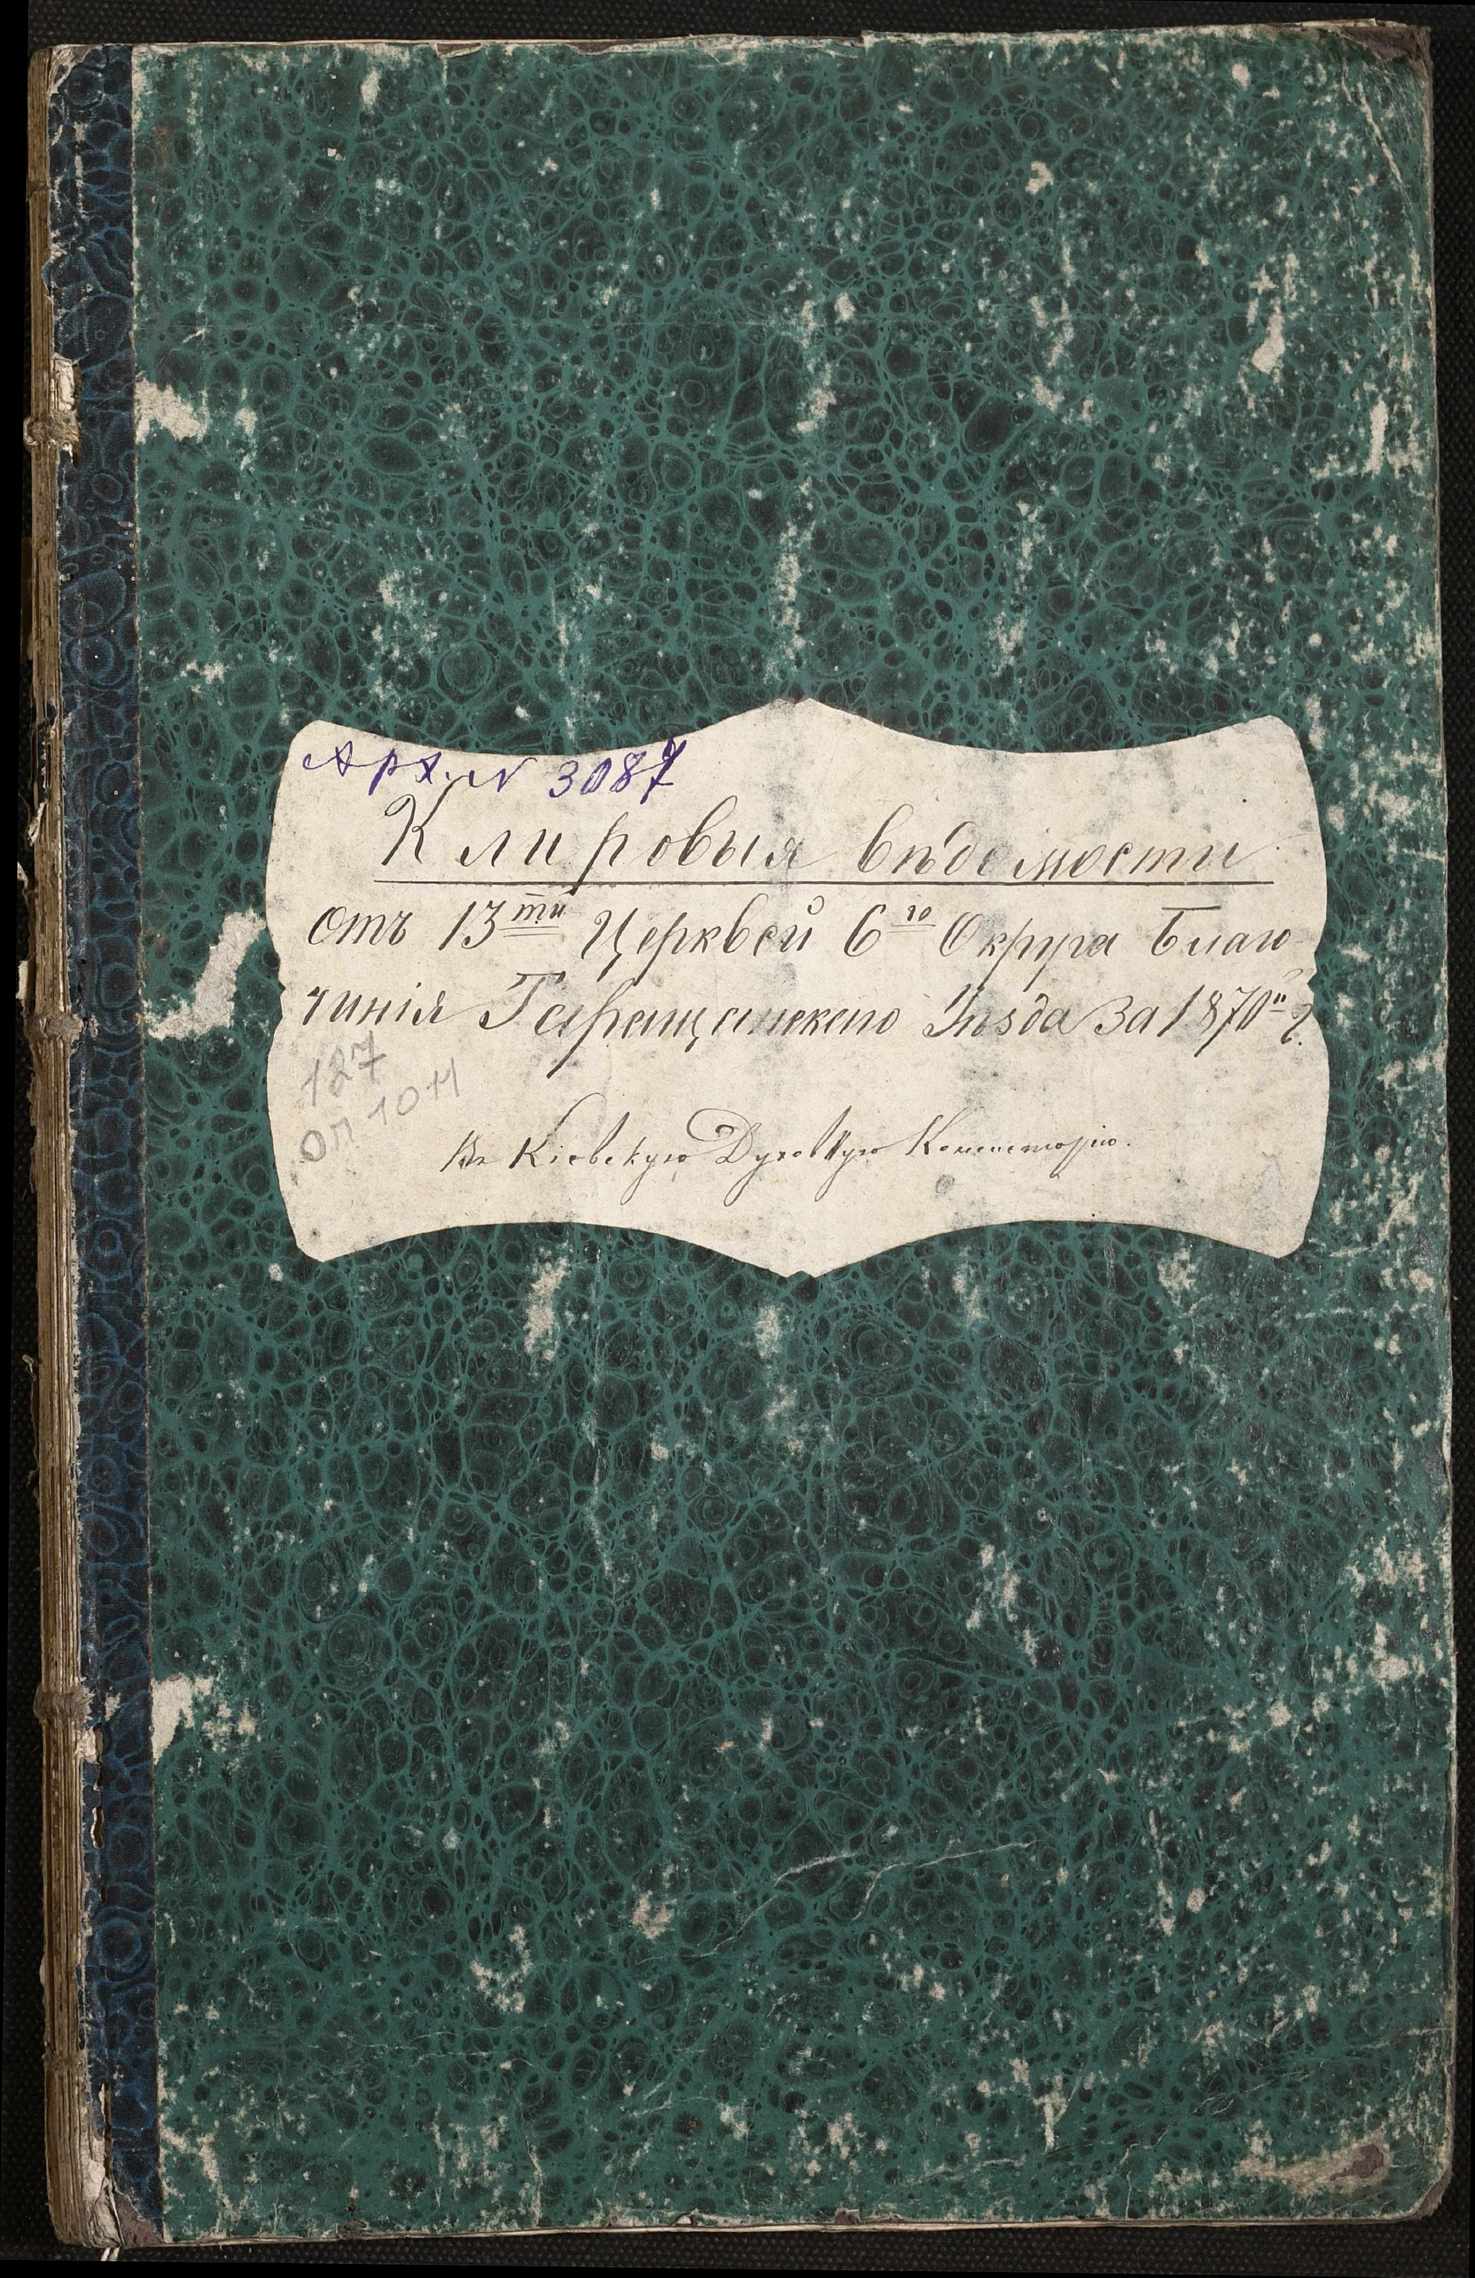 Арх. N 3087
Клировыя вѣдомости
отъ 13ти Церквей 6го Округа Благо-
чинія Таращанскаго Уѣзда за 1870й г.
127
оп 1011
Въ Кіевскую Духовную Консисторію.